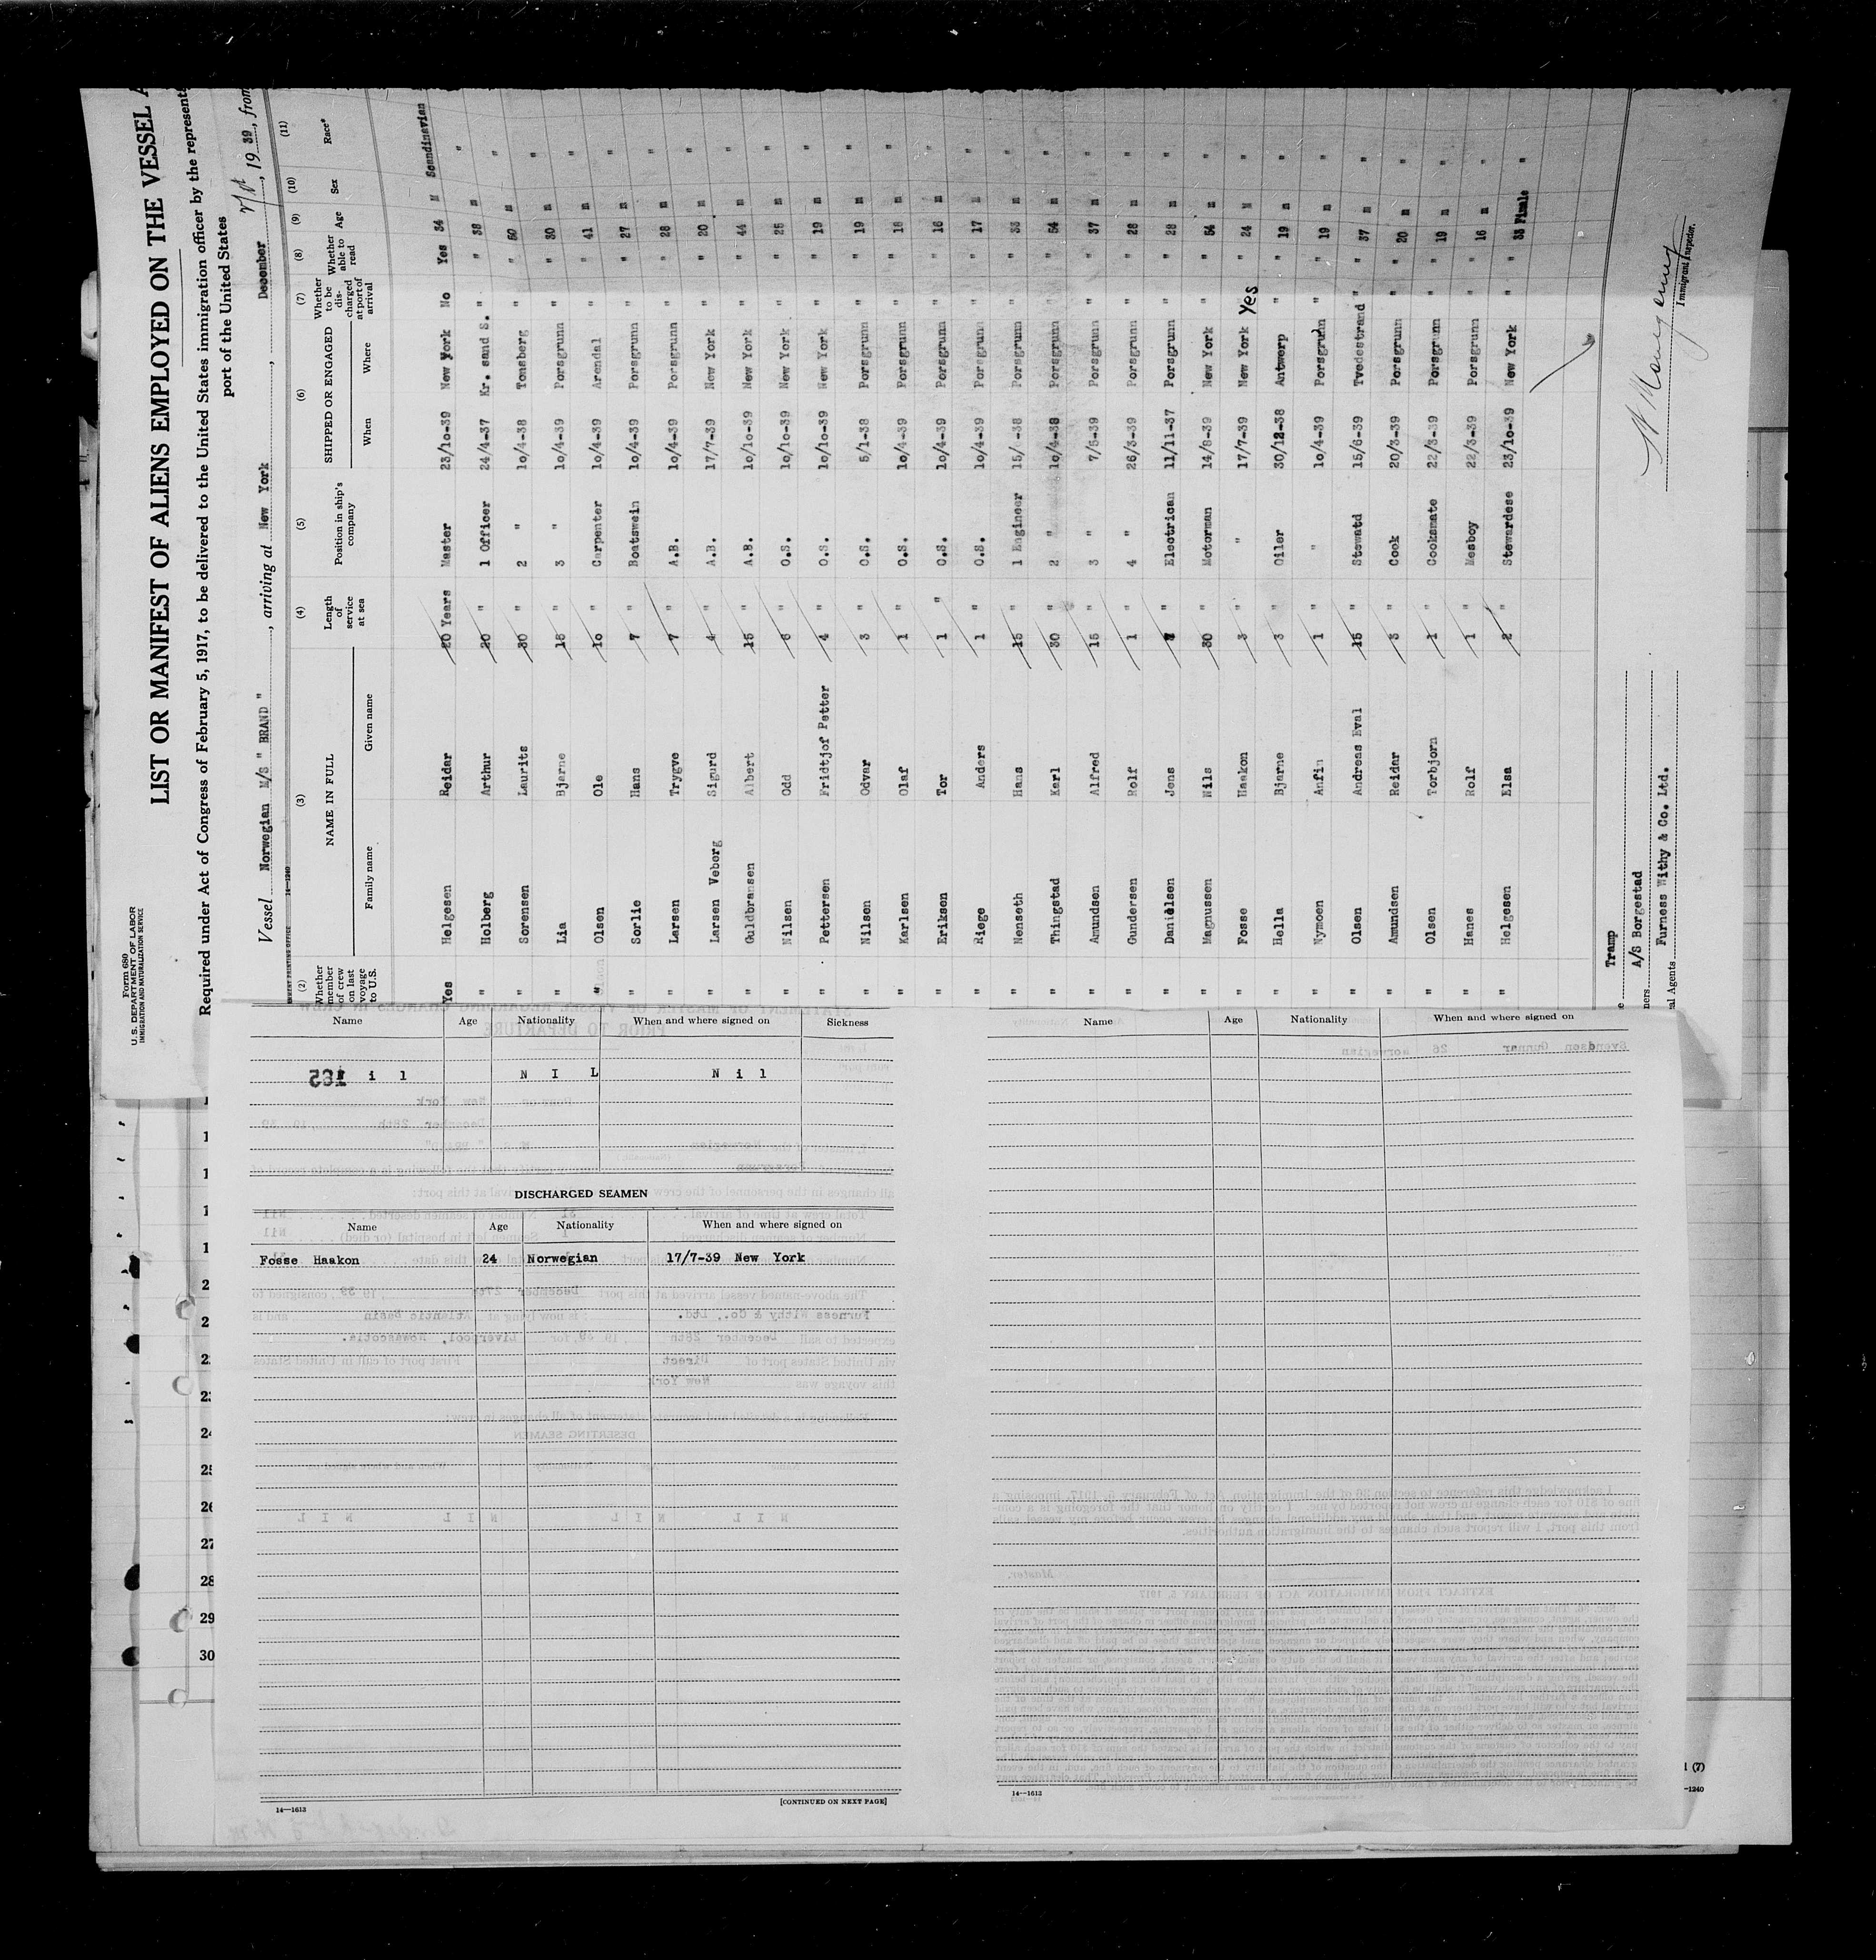 Form 680
U.S. DEPARTMENT OF LABOR
IMMIGRATION AND NATURALIZATION SERVICE
LIST OR MANIFEST OF ALIENS EMPLOYED ON THE VESSEL
Required under Act of Congress of February 5, 1917, to be delivered to the United States immigration officer by the
port of the United States
Vessel Norwegian M/S " BRAND ", arriving at New York, December , 19 39, from
14—1240
(2) (3) (4) (5) (6) (7) (8) (9) (10) (11)
Whether member of crew on last voyage to U.S. NAME IN FULL Family name Given name Length of service at sea Position in ship's company SHIPPED OR ENGAGED When Where Whether to be discharged at port of arrival Whether able to read Age Sex Race*
Yes Helgesen Reidar 20 Years Master 23/10-39 New York No Yes 34 M Scandinavian
" Holberg Arthur 20 " 1 Officer 24/4-37 Kr. sand S. " " 38 m "
" Sorensen Laurits 30 " 2 " 10/4-38 Tonsberg " " 50 m "
" Lia Bjarne 18 " 3 " 10/4-39 Porsgrunn " " 30 m "
" Olsen Ole 10 " Carpenter 10/4-39 Arendal " " 41 m "
" Sorlie Hans 7 " Boatswein 10/4-39 Porsgrunn " " 27 m "
" Larsen Trygve 7 " A.B. 10/4-39 Porsgrunn " " 28 m "
" Larsen Veberg Sigurd 4 " A.B. 17/7-39 New York " " 20 m "
" Guldbransen Albert 15 " A.B. 10/10-39 New York " " 44 m "
" Nilsen Odd " O.S. 10/10-39 New York " " 25 m "
" Pettersen Fridtjof Petter 4 " O.S. 10/10-39 New York " " 19 m "
" Nilsen Odvar 3 " O.S. 5/1-38 Porsgrunn " " 19 m "
" Karlsen Olaf 1 " O.S. 10/4-39 Porsgrunn " " 18 m "
" Eriksen Tor 1 " O.S. 10/4-39 Porsgrunn " " 16 m "
" Riege Anders 1 " O.S. 10/4-39 Porsgrunn " " 17 m "
" Nenseth Hans 15 " 1 Engineer Porsgrunn " " m "
" Thingstad Karl 30 " 2 " 10/4-38 Porsgrunn " " 54 m "
" Amundsen Alfred 15 " 3 " 7/5-39 Porsgrunn " " 37 m "
" Gundersen Rolf 1 " 4 " 26/3-39 Porsgrunn " " 28 m "
" Danielsen Jens " Electrican 11/11-37 Porsgrunn " " 28 m "
" Magnussen Nils 30 " Motorman 14/8-39 New York " " 54 m "
" Fosse Haakon 3 " " 17/7-39 New York Yes " 24 M "
" Hella Bjarne 3 " Oiler 30/12-38 Antwerp " " 19 m "
" Nymoen Anfin 1 " " 10/4-39 Porsgrunn " " 19 m "
" Olsen Andreas Eval 15 " Stewatd 15/6-39 Tvedestrand " " 37 m "
" Amundsen Reidar 3 " Cook 20/3-39 Porsgrunn " " 20 m "
" Olsen Torbjorn 1 " Cooksmate 22/3-39 Porsgrunn " " 19 m "
" Hanes Rolf 1 " Mesboy 22/3-39 Porsgrunn " " 16 m "
" Helgesen Elsa 2 " Stewardese 23/10-39 New York " " 33 Fimale "
Tramp
A/S Borgestad
Furness Withy & Co. Ltd.
Agents
Immigrant Inspector.
Name Age Nationality When and where signed on Sickness
165
N i l N I L N i l
DISCHARGED SEAMEN
Name Age Nationality When and where signed on
Fosse Haakon 24 Norwegian 17/7-39 New York
14—1613
[CONTINUED ON NEXT PAGE]
Name Age Nationality When and where signed on
14—1613
24
26
27
28
29
30
(7)
—1240